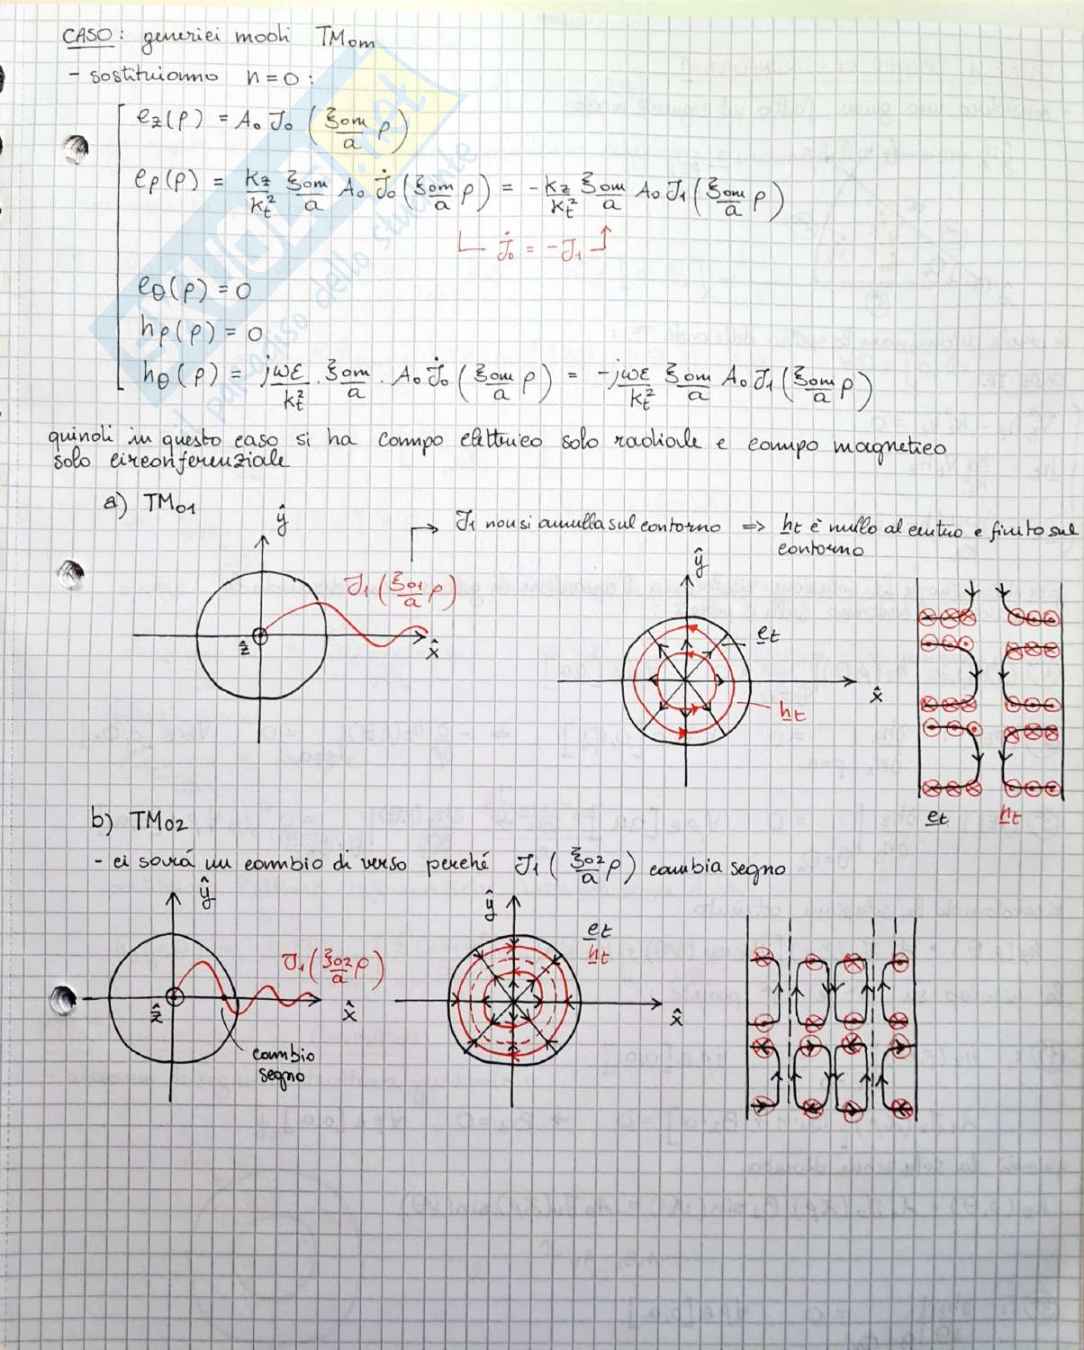 CASO: generici modi TM0m
- sostituiamo n=0:
ez(ρ) = A0 J0 (ξ0m/a ρ)
eρ(ρ) = kz/kt² ξ0m/a A0 J̇0 (ξ0m/a ρ) = - kz/kt² ξ0m/a A0 J1 (ξ0m/a ρ)
J̇0 = -J1
eθ(ρ) = 0
hρ(ρ) = 0
hθ(ρ) = jωε/kt² · ξ0m/a · A0 J̇0 (ξ0m/a ρ) = -jωε/kt² ξ0m/a A0 J1 (ξ0m/a ρ)
quindi in questo caso si ha campo elettrico solo radiale e campo magnetico
solo circonferenziale
a) TM01
J1 non si annulla sul contorno ⇒ ht è nullo al centro e finito sul
contorno
ŷ
J1 (ξ01/a ρ)
ẑ
x̂
ŷ
et
x̂
ht
et
ht
b) TM02
- ci sarà un cambio di verso perché J1 (ξ02/a ρ) cambia segno
ŷ
J1 (ξ02/a ρ)
ẑ
x̂
cambio
segno
ŷ
et
ht
x̂
SKUOLA.net
il paradiso dello studente